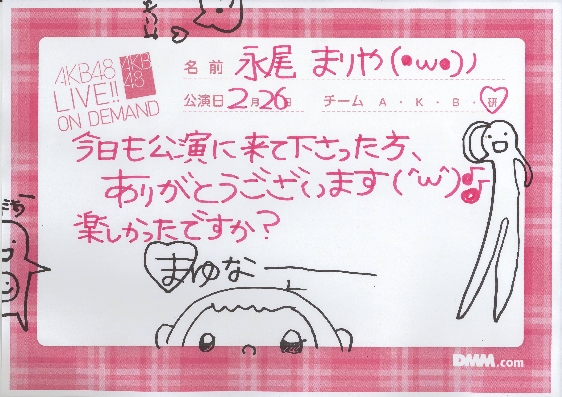 AKB48
LIVE!!
ON DEMAND
AKB
48
名前 永尾 まりや(•ω•)ノ
公演日 2月26日 チーム A・K・B・研
今日も公演に来て下さった方、
ありがとうございます(^ω^)♫
楽しかったですか?
まゆなー
DMM.com